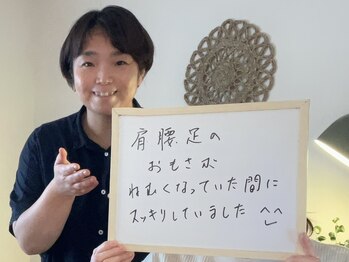 肩腰足の
おもさが
ねむくなっていた間に
スッキリしていました ^^